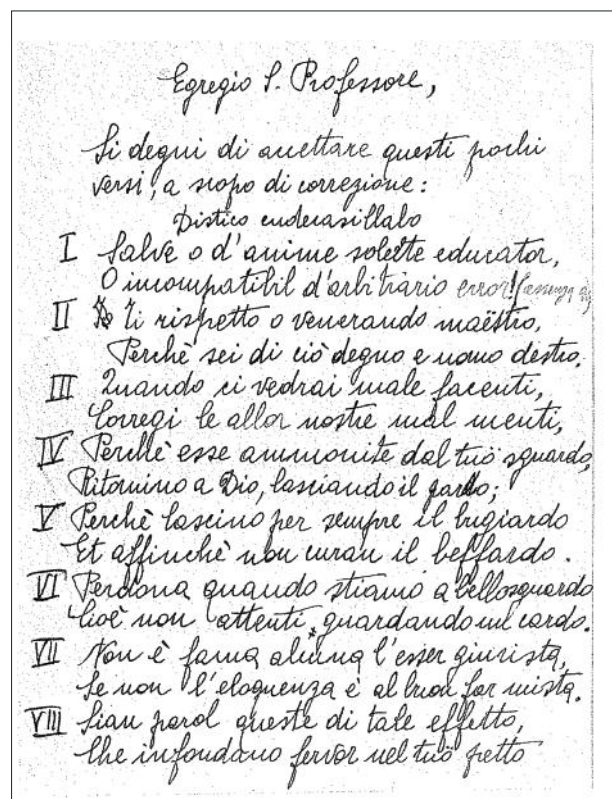 Egregio S. Professore,
Si degni di accettare questi pochi
versi, a scopo di correzione:
Distico endecasillabo
I Salve o d'anime solerte educator,
O incompatibil d'arbitrario error!
II Ti rispetto o venerando maëstro,
Perchè sei di ciò degno e uomo destro.
III Quando ci vedrai male facenti,
Corregi le allor nostre mal menti,
IV Perchè esse ammonite dal tuo sguardo,
Ritornino a Dio, lasciando il
V Perchè lascino per sempre il bugiardo
Et affinchè non curan il beffardo.
VI Perdona quando stiamo a bellosguardo
Cioè non attenti, guardando un cardo.
VII Non è fama alcuna l'esser giurista,
Se non l'eloquenza è al buon far mista.
VIII Sian parol queste di tale effetto,
Che infondano fervor nel tuo petto